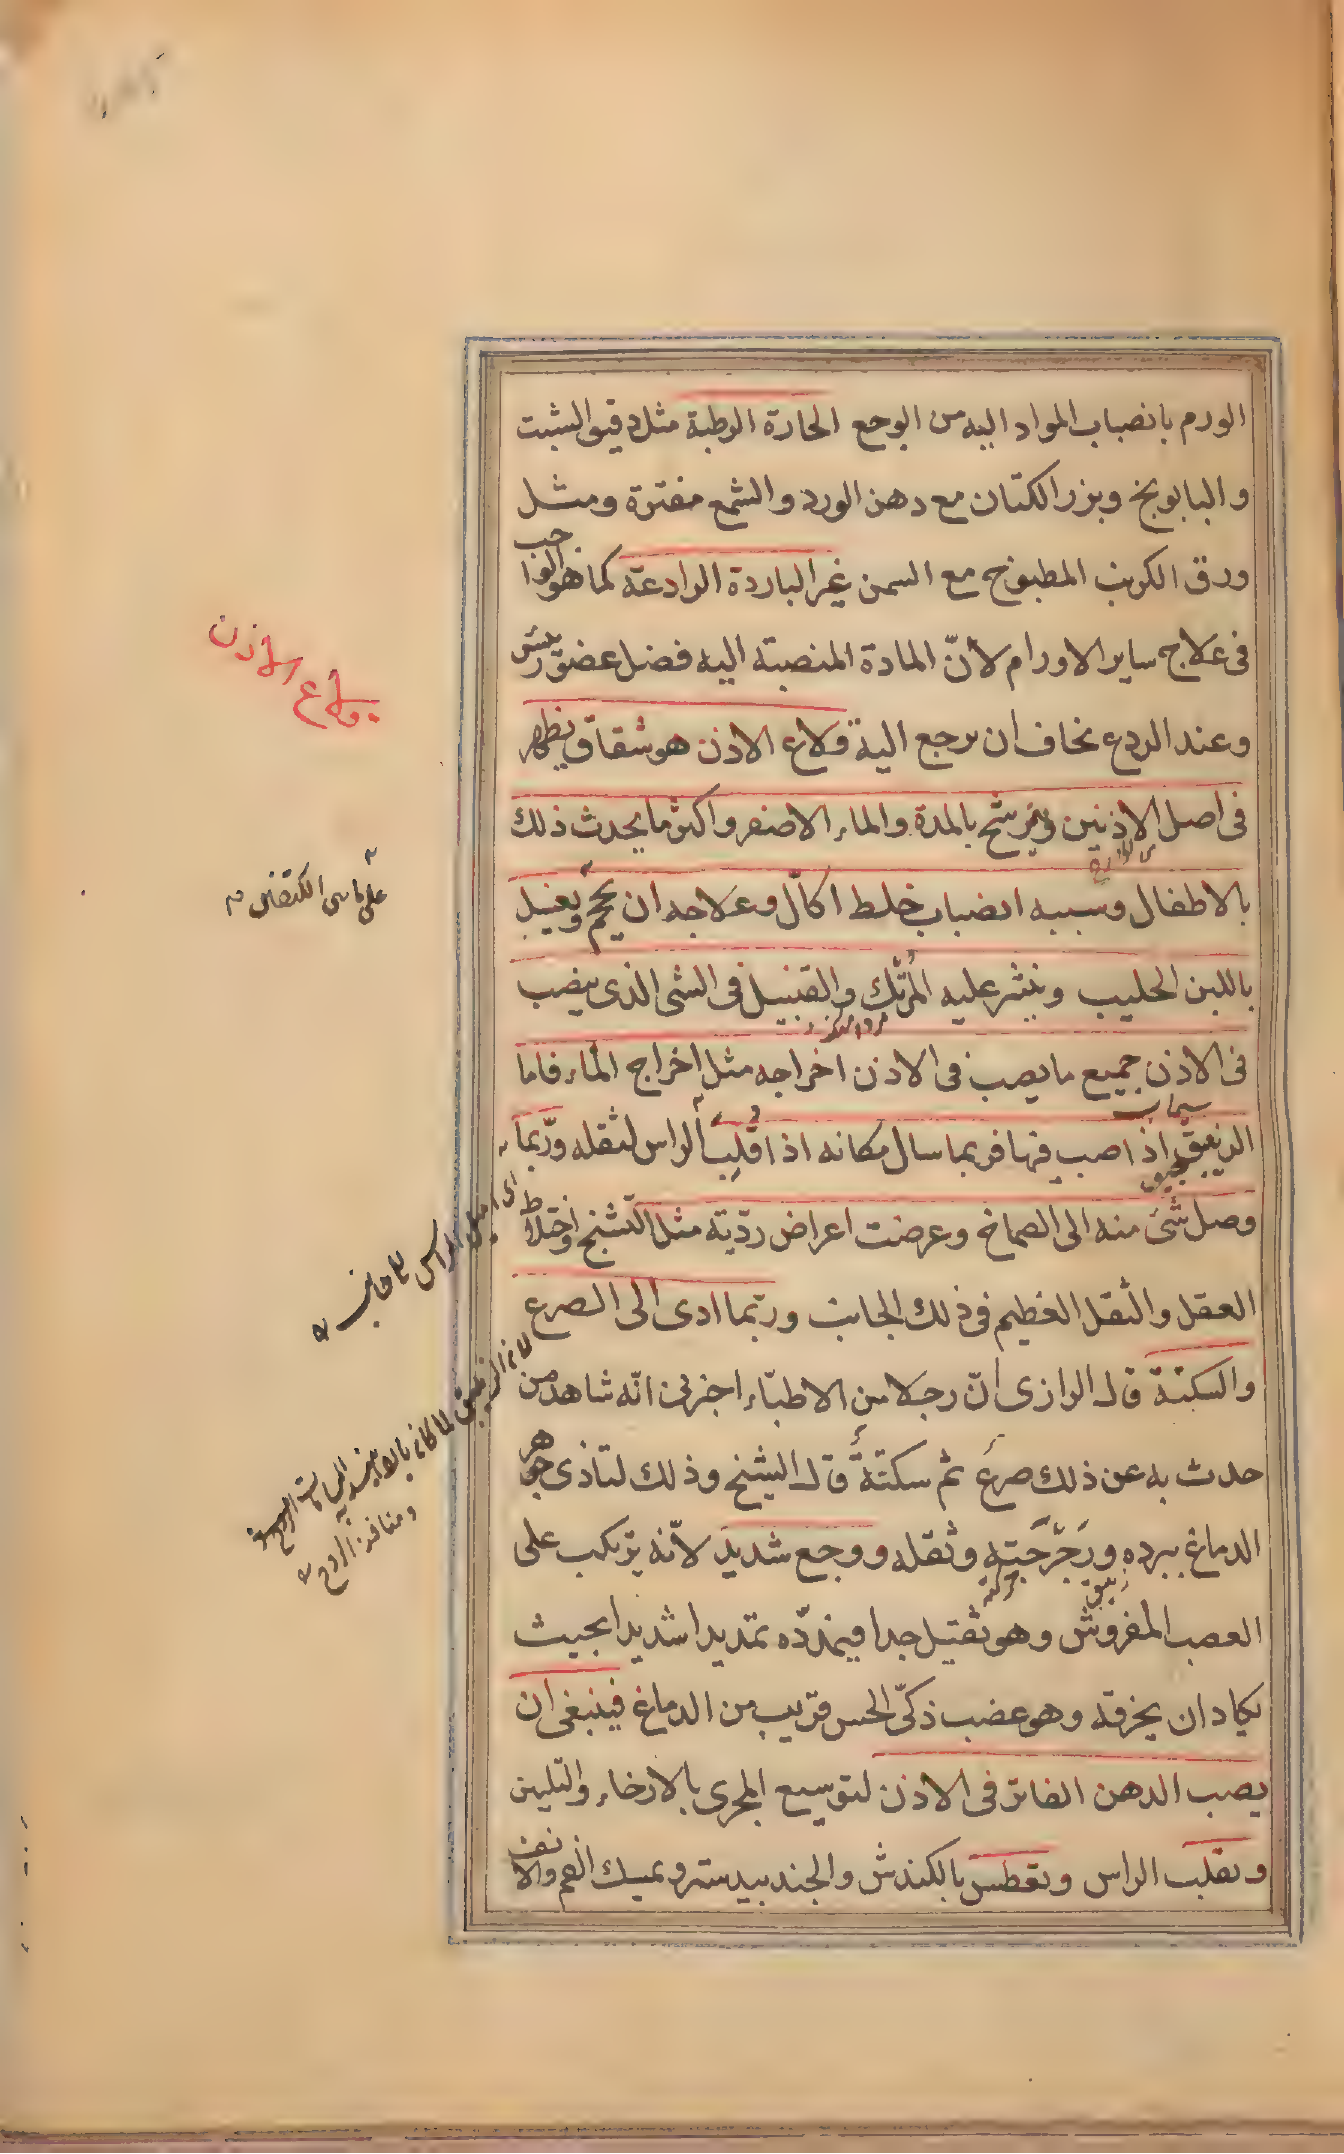 الورم بانصباب المواد اليه من الوجع الحارة الرطبة مثل دقيق الشبت
والبابونج وبزر الكتان مع دهن الورد والشمع مفترة ومثل
ورق الكرنب المطبوخ مع السمن غير الباردة الرادعة كما هو الواجب
فى علاج ساير الاورام لانّ المادة المنصبة اليه فضل عضو رئيس
وعند الردع نخاف ان يرجع اليه قلاع الاذن هو شقاق يظهر
فى اصل الاذنين ويرشح بالمدة والماء الاصفر واكثر ما يحدث ذلك
بالاطفال وسببه انصباب خلط اكّال وعلاجه ان يحجم ويغسل
باللبن الحليب وينثر عليه المُرتّك والقنبيل فى الشى الذى ينصب
فى الاذن جميع ما يصب فى الاذن اخراجه مثل اخراج الماء فاما
سيماب
الزيبق اذا صب فيها فربما سال مكانه اذا قُلِبَ الراس لثقله وربّما
وصل شئ منه الى الصماخ وعرضت اعراض رديّة مثل التشنج واختلاط
العقل والثقل العظيم فى ذلك الجانب وربّما ادى الى الصرع
والسكتة قال الرازى انّ رجلا من الاطبّاء اخبرنى انّه شاهد من
حدث به عن ذلك صرعَ ثم سكتةٌ قال الشيخ وذلك لتاذى جوهر
الدماغ ببرده ورَجْرَجَتِه وثقله ووجع شديد لانّه يرتكب على
زيبق
حركة
العصب المفروش وهو ثقيل جدا فيمدّده تمديدا شديدا بحيث
يكاد ان يخرقه وهو عضب ذكىّ الحس قريب من الدماغ فينبغى ان
يصب الدهن الفاتر فى الاذن لتوسيع المجرى بالارخاء والتليين
ويقلب الراس ويعطس بالكندش والجندبيدستر ويمسك الفم والانف
قلاع الاذن
ومنافذ الروح